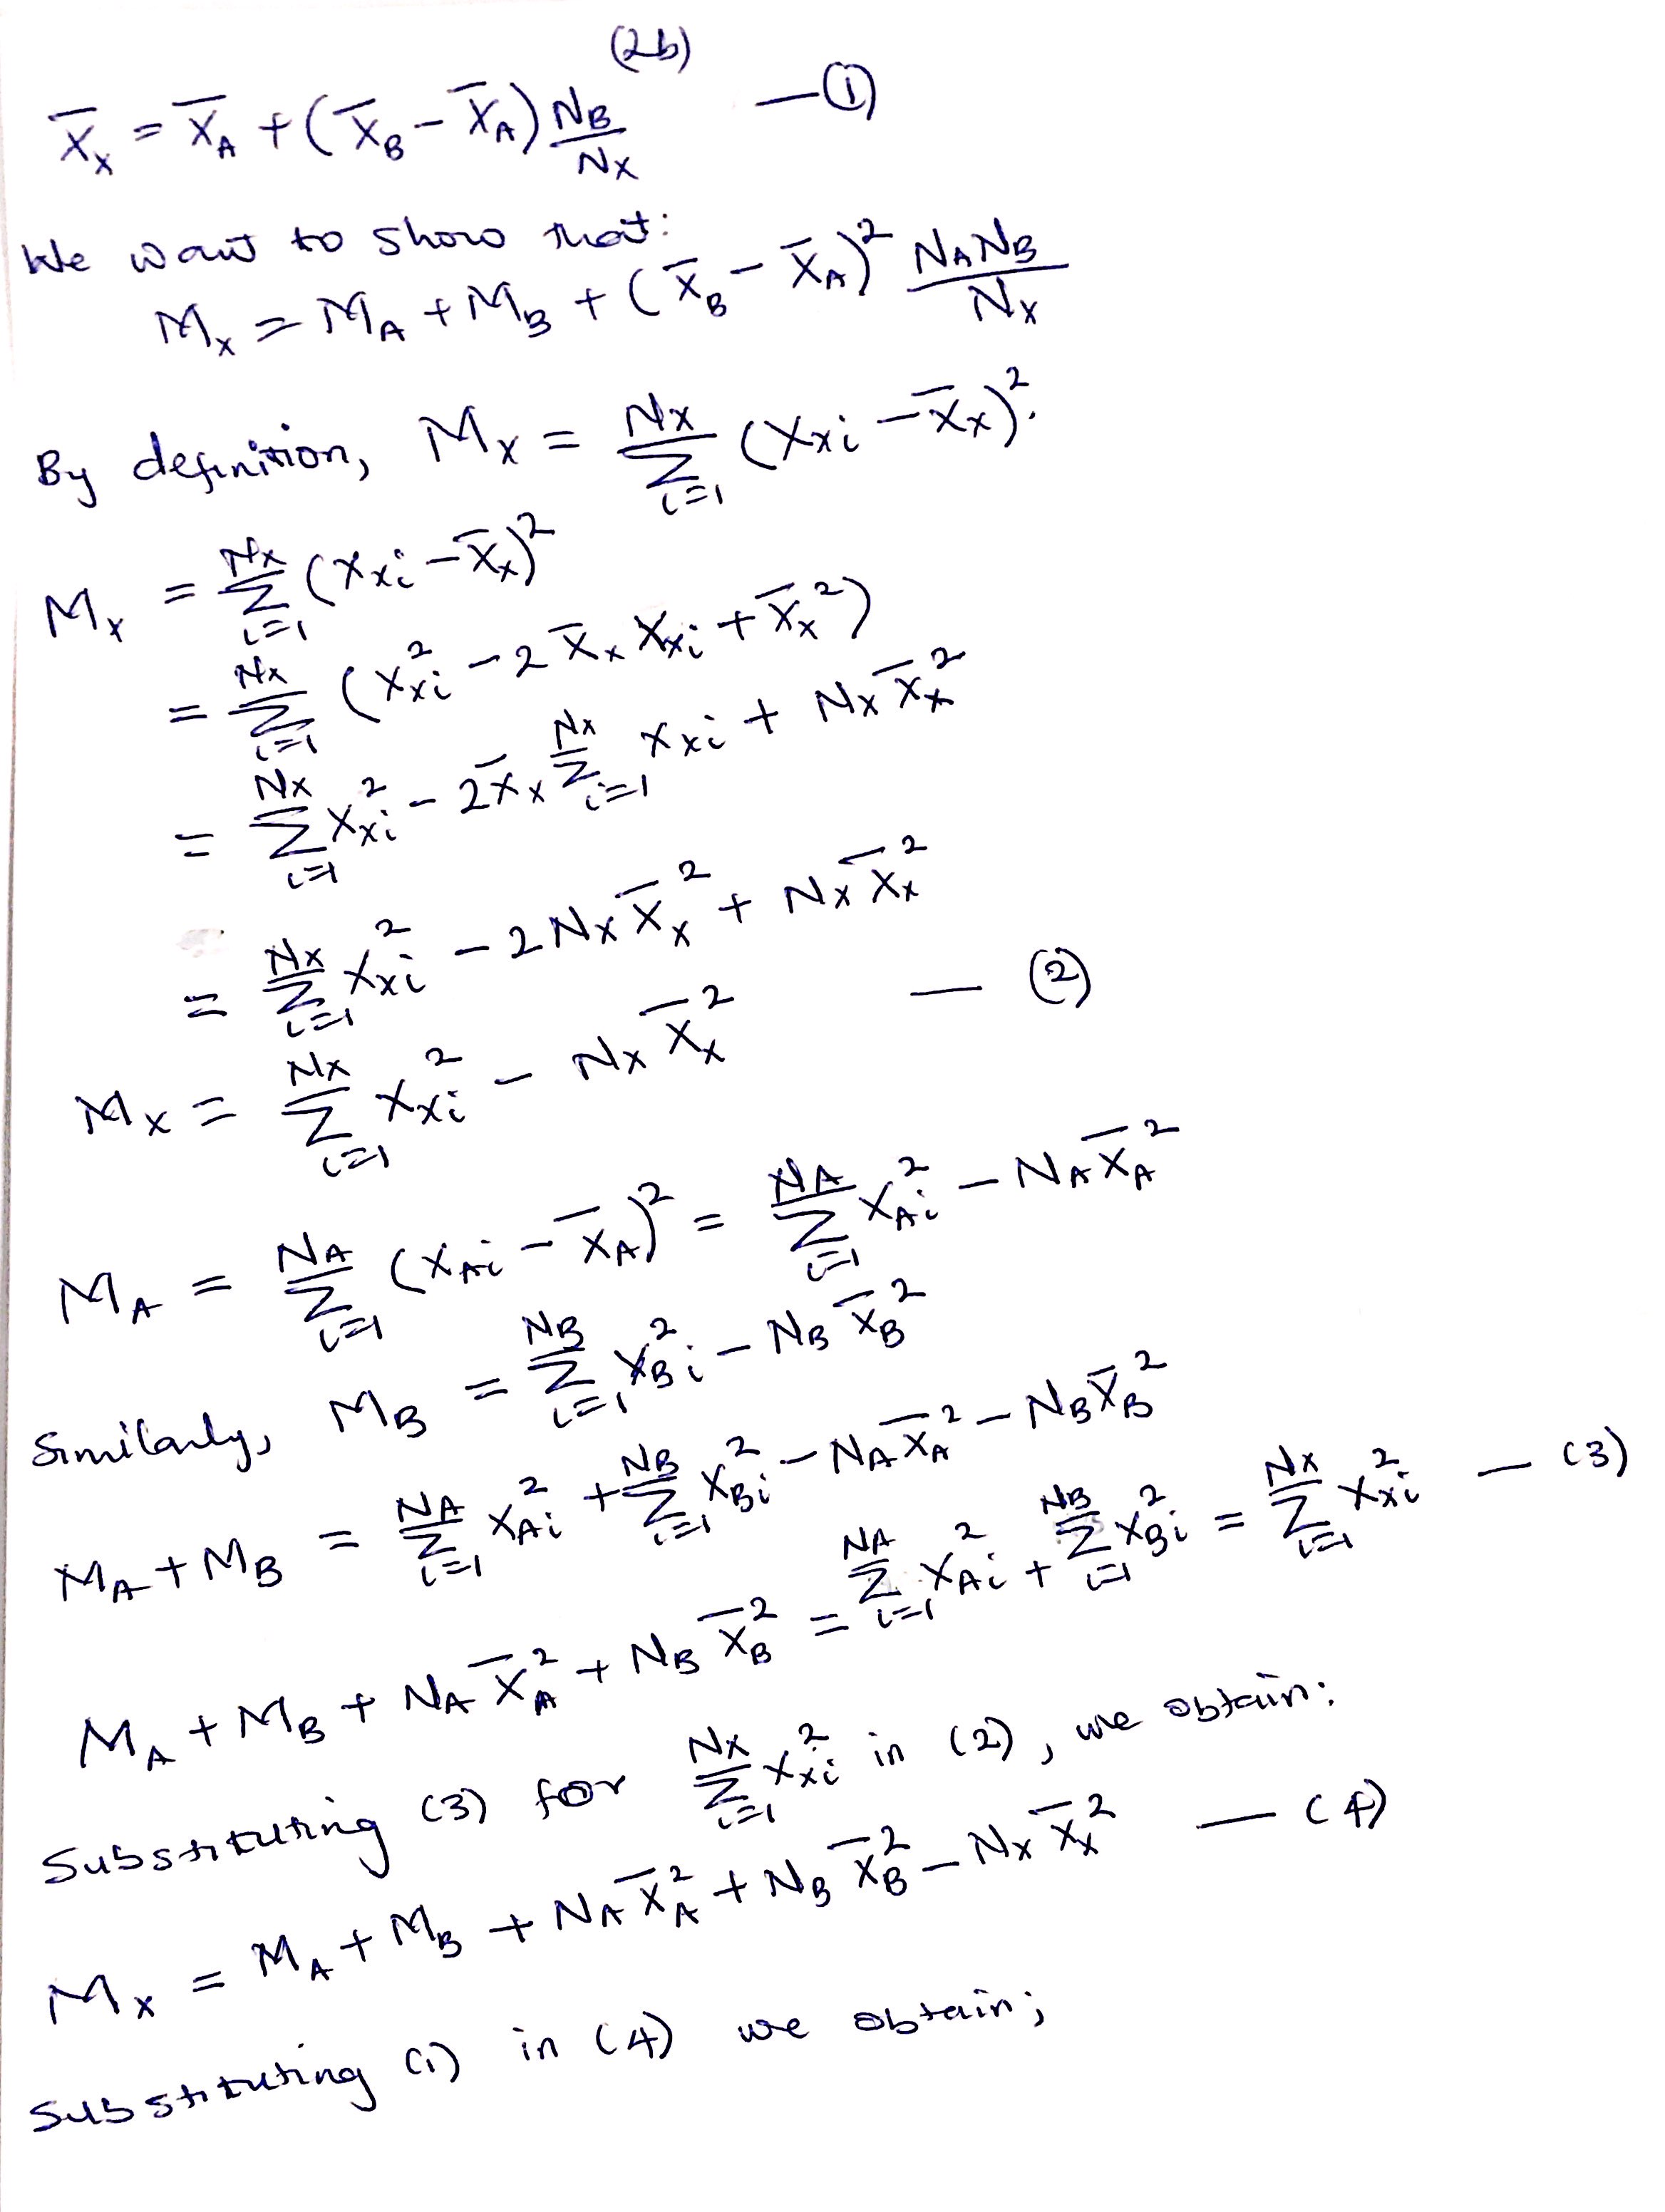 (2b)
X̄ₓ = X̄_A + (X̄_B − X̄_A) N_B/Nₓ — ①
We want to show that:
Mₓ = M_A + M_B + (X̄_B − X̄_A)² N_A N_B/Nₓ
By definition, Mₓ = Σ_{i=1}^{Nₓ} (Xₓi − X̄ₓ)².
Mₓ = Σ_{i=1}^{Nₓ} (Xₓi − X̄ₓ)²
= Σ_{i=1}^{Nₓ} (Xₓi² − 2 X̄ₓ Xₓi + X̄ₓ²)
= Σ_{i=1}^{Nₓ} Xₓi² − 2X̄ₓ Σ_{i=1}^{Nₓ} Xₓi + Nₓ X̄ₓ²
= Σ_{i=1}^{Nₓ} Xₓi² − 2 Nₓ X̄ₓ² + Nₓ X̄ₓ²
Mₓ = Σ_{i=1}^{Nₓ} Xₓi² − Nₓ X̄ₓ² — ②
M_A = Σ_{i=1}^{N_A} (X_Ai − X̄_A)² = Σ_{i=1}^{N_A} X_Ai² − N_A X̄_A²
Similarly, M_B = Σ_{i=1}^{N_B} X_Bi² − N_B X̄_B²
M_A + M_B = Σ_{i=1}^{N_A} X_Ai² + Σ_{i=1}^{N_B} X_Bi² − N_A X̄_A² − N_B X̄_B²
M_A + M_B + N_A X̄_A² + N_B X̄_B² = Σ_{i=1}^{N_A} X_Ai² + Σ_{i=1}^{N_B} X_Bi² = Σ_{i=1}^{Nₓ} Xₓi² — (3)
Substituting (3) for Σ_{i=1}^{Nₓ} Xₓi² in (2), we obtain:
Mₓ = M_A + M_B + N_A X̄_A² + N_B X̄_B² − Nₓ X̄ₓ² — (4)
Substituting (1) in (4) we obtain;